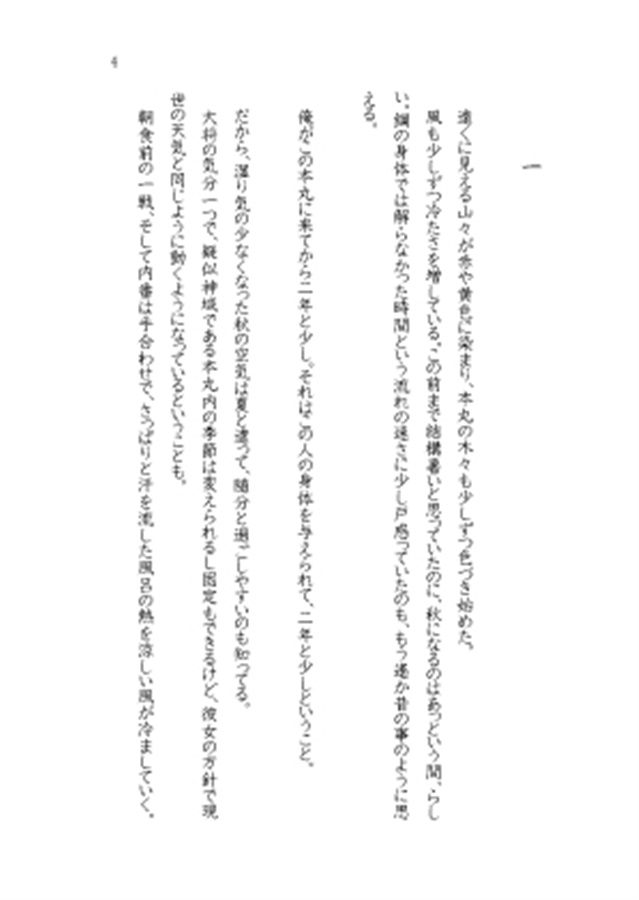 4
一
遠くに見える山々が赤や黄色に染まり、本丸の木々も少しずつ色づき始めた。
風も少しずつ冷たさを増している。この前まで結構暑いと思っていたのに、秋になるのはあっという間、らし
い。鋼の身体では解らなかった時間という流れの速さに少し戸惑っていたのも、もう遥か昔の事のように思
える。
俺がこの本丸に来てから二年と少し。それはこの人の身体を与えられて、二年と少しということ。
だから、湿り気の少なくなった秋の空気は夏と違って、随分と過ごしやすいのも知ってる。
大将の気分一つで、疑似神域である本丸内の季節は変えられるし固定もできるけど、彼女の方針で現
世の天気と同じように動くようになっているということも。
朝食前の一戦、そして内番は手合わせで、さっぱりと汗を流した風呂の熱を涼しい風が冷ましていく。